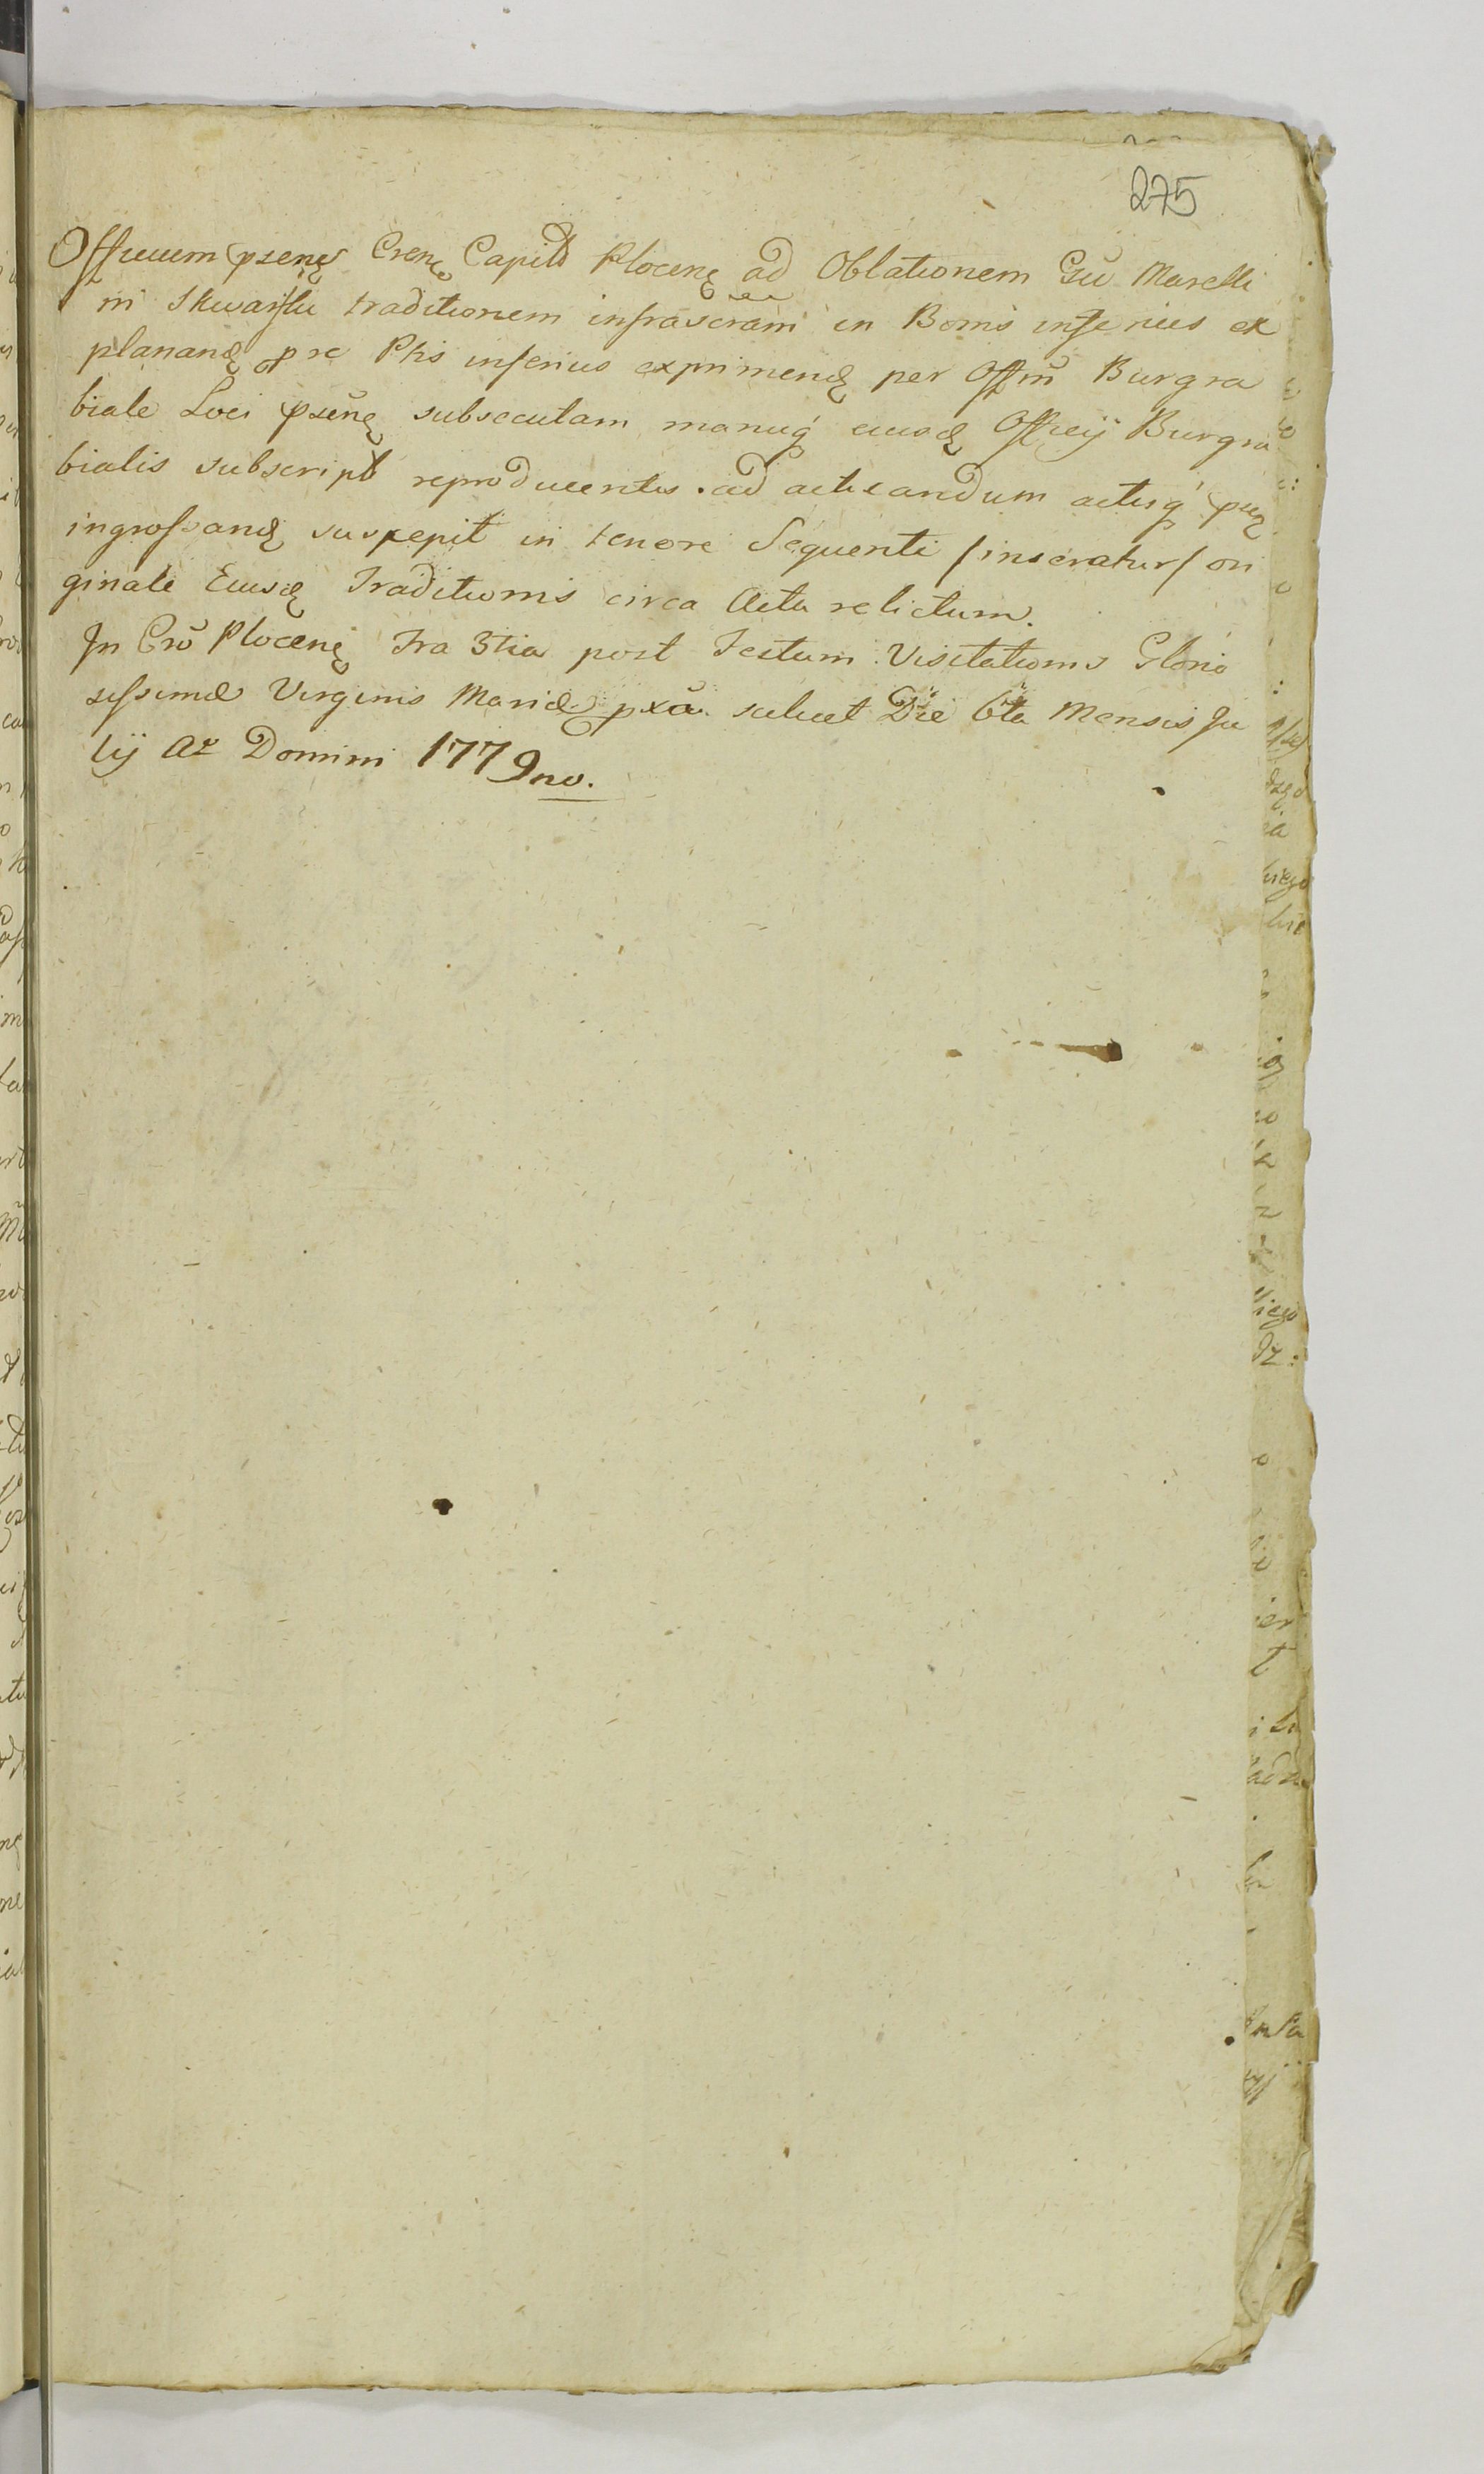 275
Officium psenę Crenę Capitb Plocenę ad Oblationem Gsū Marelli
ni Skwarſki traditionem infrascram in Bonis inferius ex
planandę pre Pti̅s inferius exprimendę per Offm̅ Burgra
biale Loci psenę subsecutam manuq́ eiusdę Offcij Burgra
bialis subscript reproducentis ad acticandum actisq́ psę
ingroſsandę suscepit in tenore Sequenti /inseratur/ ori
ginale Eiusdę Traditionis circa Acta relictum.
In Crō Plocenę Fra 3tia post Festum Visitationis Glorio
siſsimæ Virginis Mariæ pxa scilicet Die 6ta Mensis Ju
lij Ao Domini 1779no.